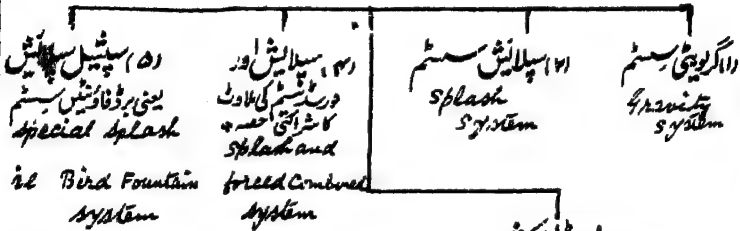 (۱) گریویٹی سسٹم
Gravity
system
(۲) سپلائش سسٹم
Splash
System
(۴) سپلائش اور
فورسڈ سسٹم کی ملاوٹ
کا شراکتی حصہ
Splash and
forced Combined
System
(۵) سپیشل سپلائش
یعنی برڈ فاؤنٹین سسٹم
Special Splash
ie Bird Fountain
System